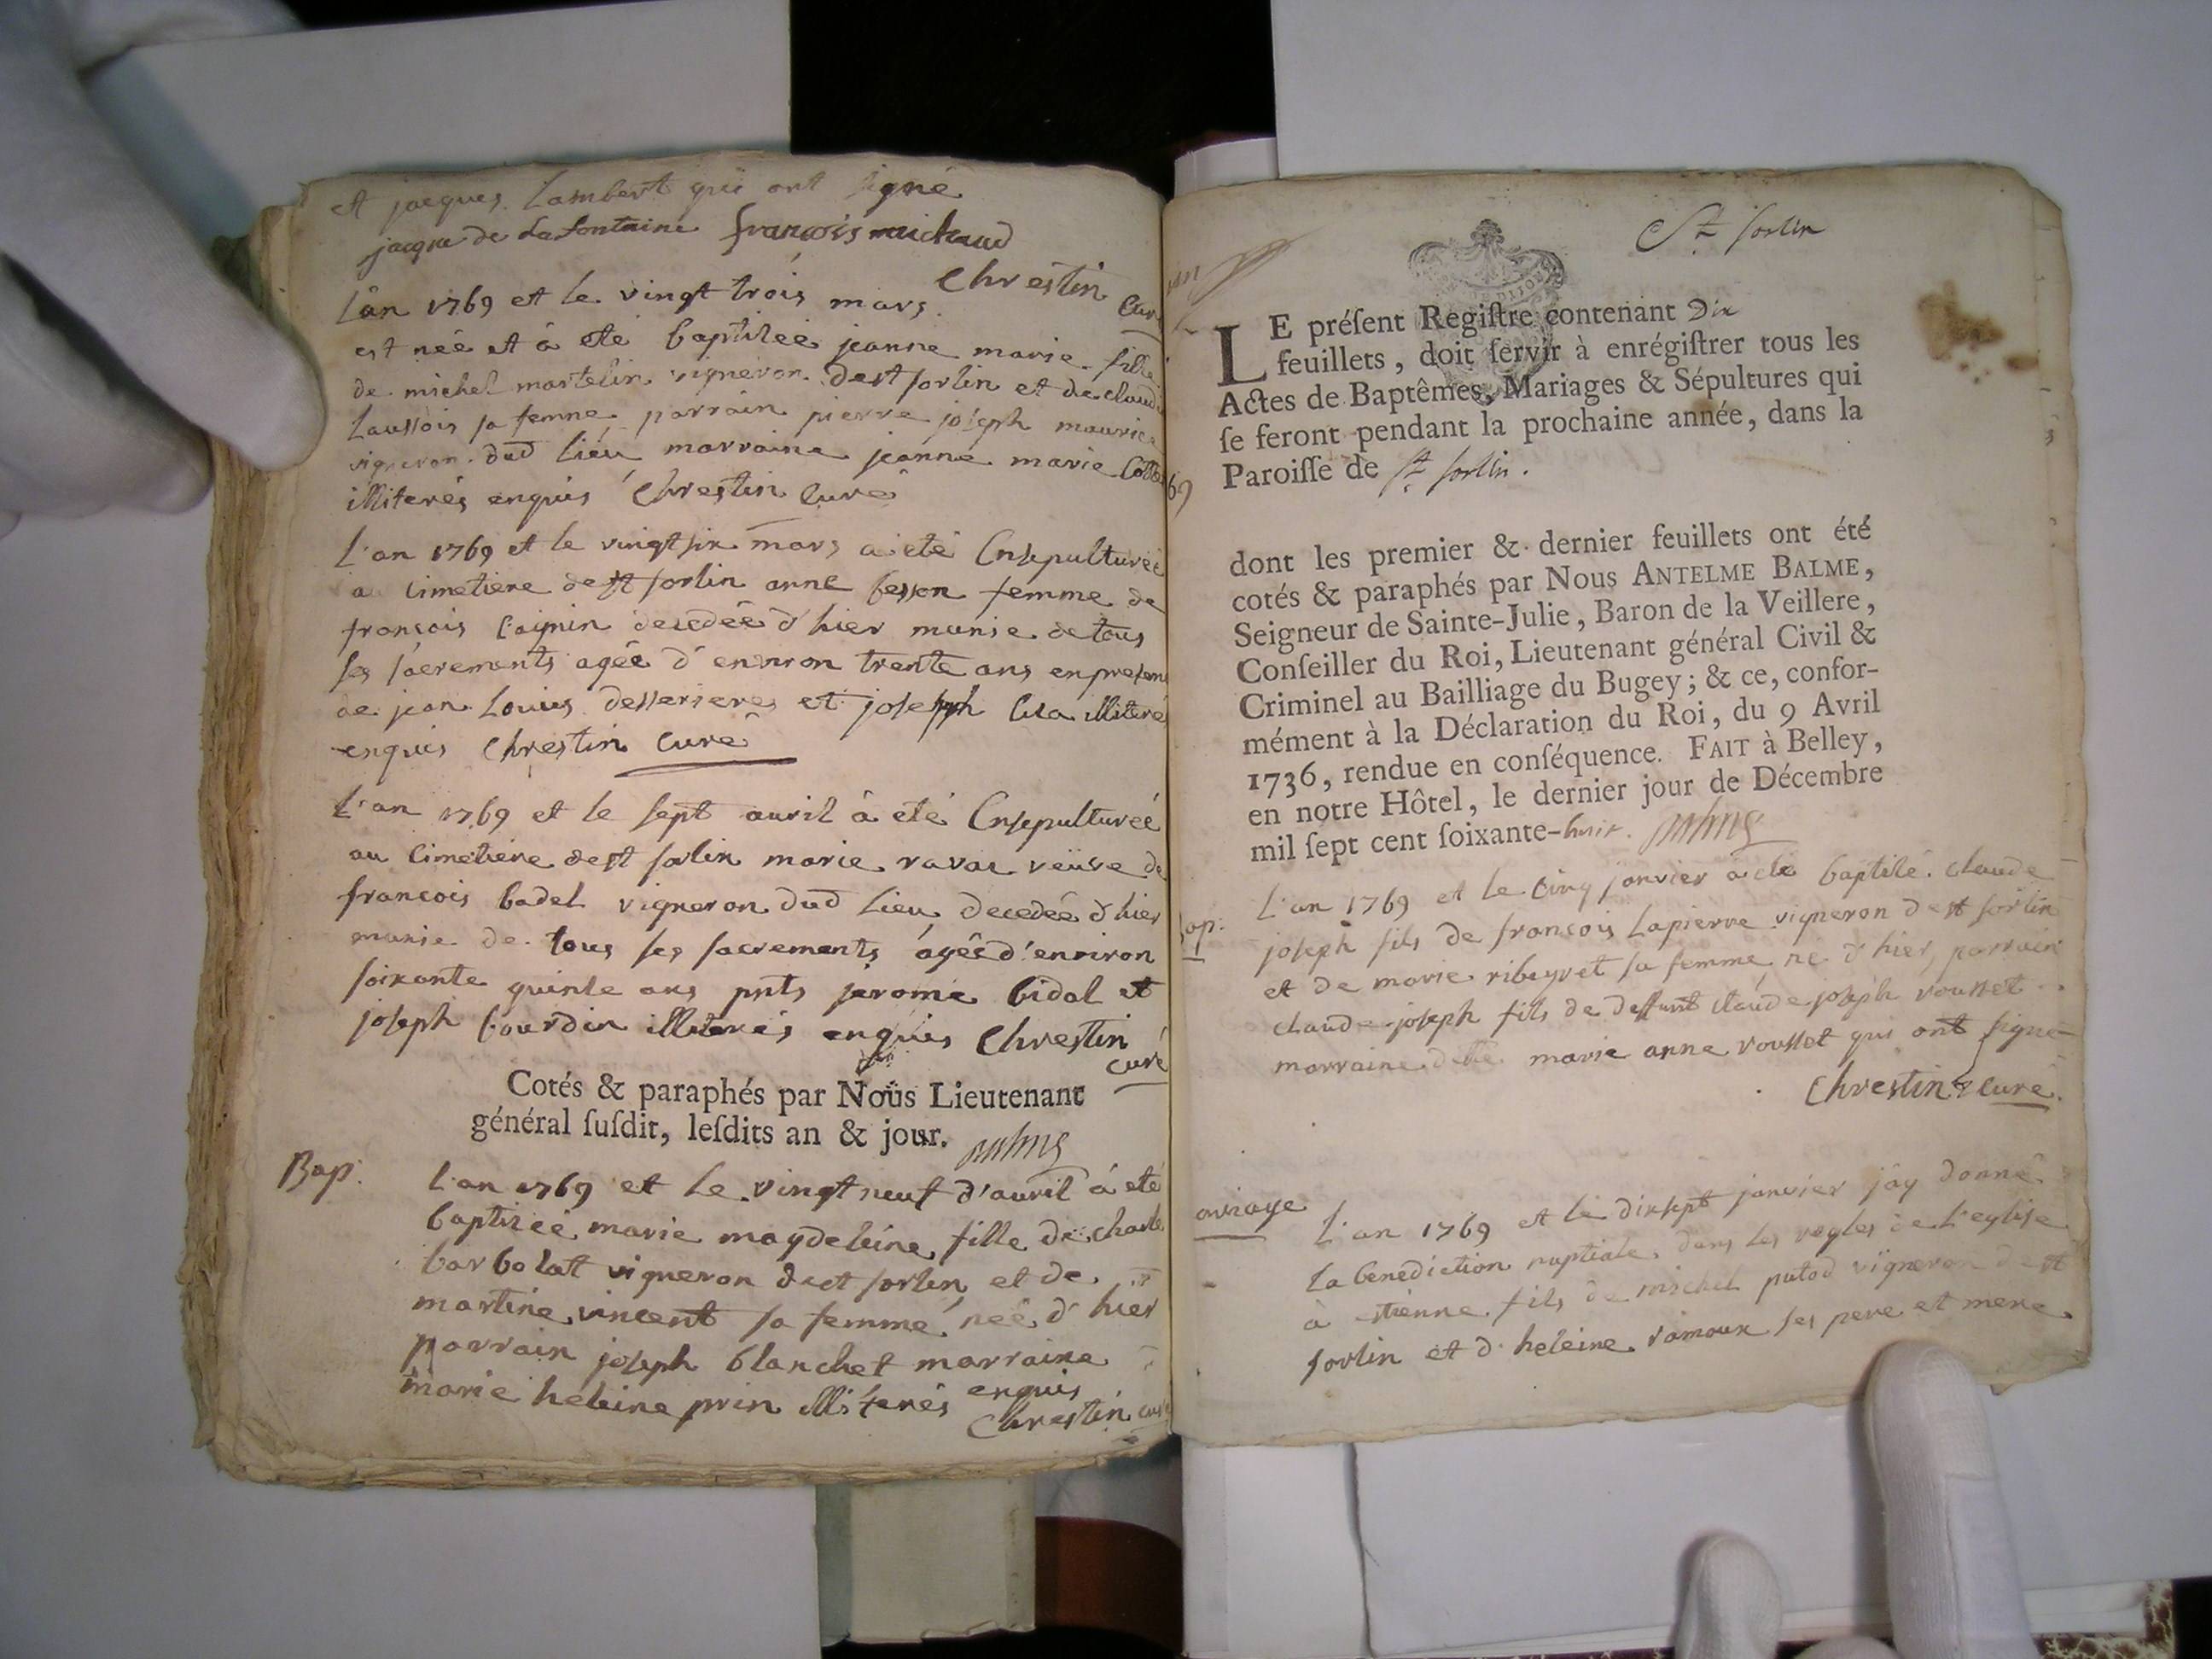 et jacques Lambert qui ont signé
jacque de Lafontaine françois michaud
Chrestin Curé
L'an 1769 et le vingt trois mars
est née et à eté baptisée jeanne marie fille
de michel martelin vigneron dest sorlin et de claud
sa femme parrain pierre joseph maurice
vigneron dud lieu marraine jeanne marie
illiterés enquis Chrestin Curé
L'an 1769 et le vingt six mars a eté Ensepulturée
au Cimetiere de st sorlin anne besson femme de
françois decedée d'hier munie de tous
ses sacrements agée d'environ trente ans en presen
de jean Louis desserieres et joseph illiteré
enquis Chrestin Curé
L'an 1769 et le sept avril à eté Ensepulturée
au Cimetiere dest sorlin marie ravat veuve de
françois badel vigneron dud lieu decedée d'hier
munie de tous ses sacrements agée d'environ
soixante quinse ans pnts jerome bidal et
joseph bourdin illiterés enquis Chrestin
curé
Cotés & paraphés par Nous Lieutenant
général ſuſdit, leſdits an & jour. Balme
Bap. L'an 1769 et le vingt neuf d'avril à eté
baptisée marie magdeleine fille de charle
barbolat vigneron dest sorlin et de
martine vincent sa femme née d'hier
parrain joseph blanchet marraine
marie heleine prin illiterés enquis
Chrestin curé
St sorlin
LE préſent Regiſtre contenant Dix
feuillets, doit ſervir à enrégiſtrer tous les
Actes de Baptêmes, Mariages & Sépultures qui
ſe feront pendant la prochaine année, dans la
Paroiſſe de st sorlin.
69
dont les premier & dernier feuillets ont été
cotés & paraphés par Nous ANTELME BALME,
Seigneur de Sainte-Julie, Baron de la Veillere,
Conſeiller du Roi, Lieutenant général Civil &
Criminel au Bailliage du Bugey; & ce, confor-
mément à la Déclaration du Roi, du 9 Avril
1736, rendue en conſéquence. FAIT à Belley,
en notre Hôtel, le dernier jour de Décembre
mil ſept cent ſoixante-huit. Balme
bap. L'an 1769 et le Cinq janvier a eté baptisé claude
joseph fils de françois Lapierre vigneron dest sorlin
et de marie ribeyret sa femme né d'hier, parrain
claude joseph fils de deffunt claude joseph rousset
marraine marie anne rousset qui ont signé
Chrestin Curé.
ariage L'an 1769 et le dixsept janvier jay donné
La benediction nuptiale dans les regles de L'eglise
à etienne fils de michel putod vigneron dest
sorlin et d'heleine ramoux ses pere et mere